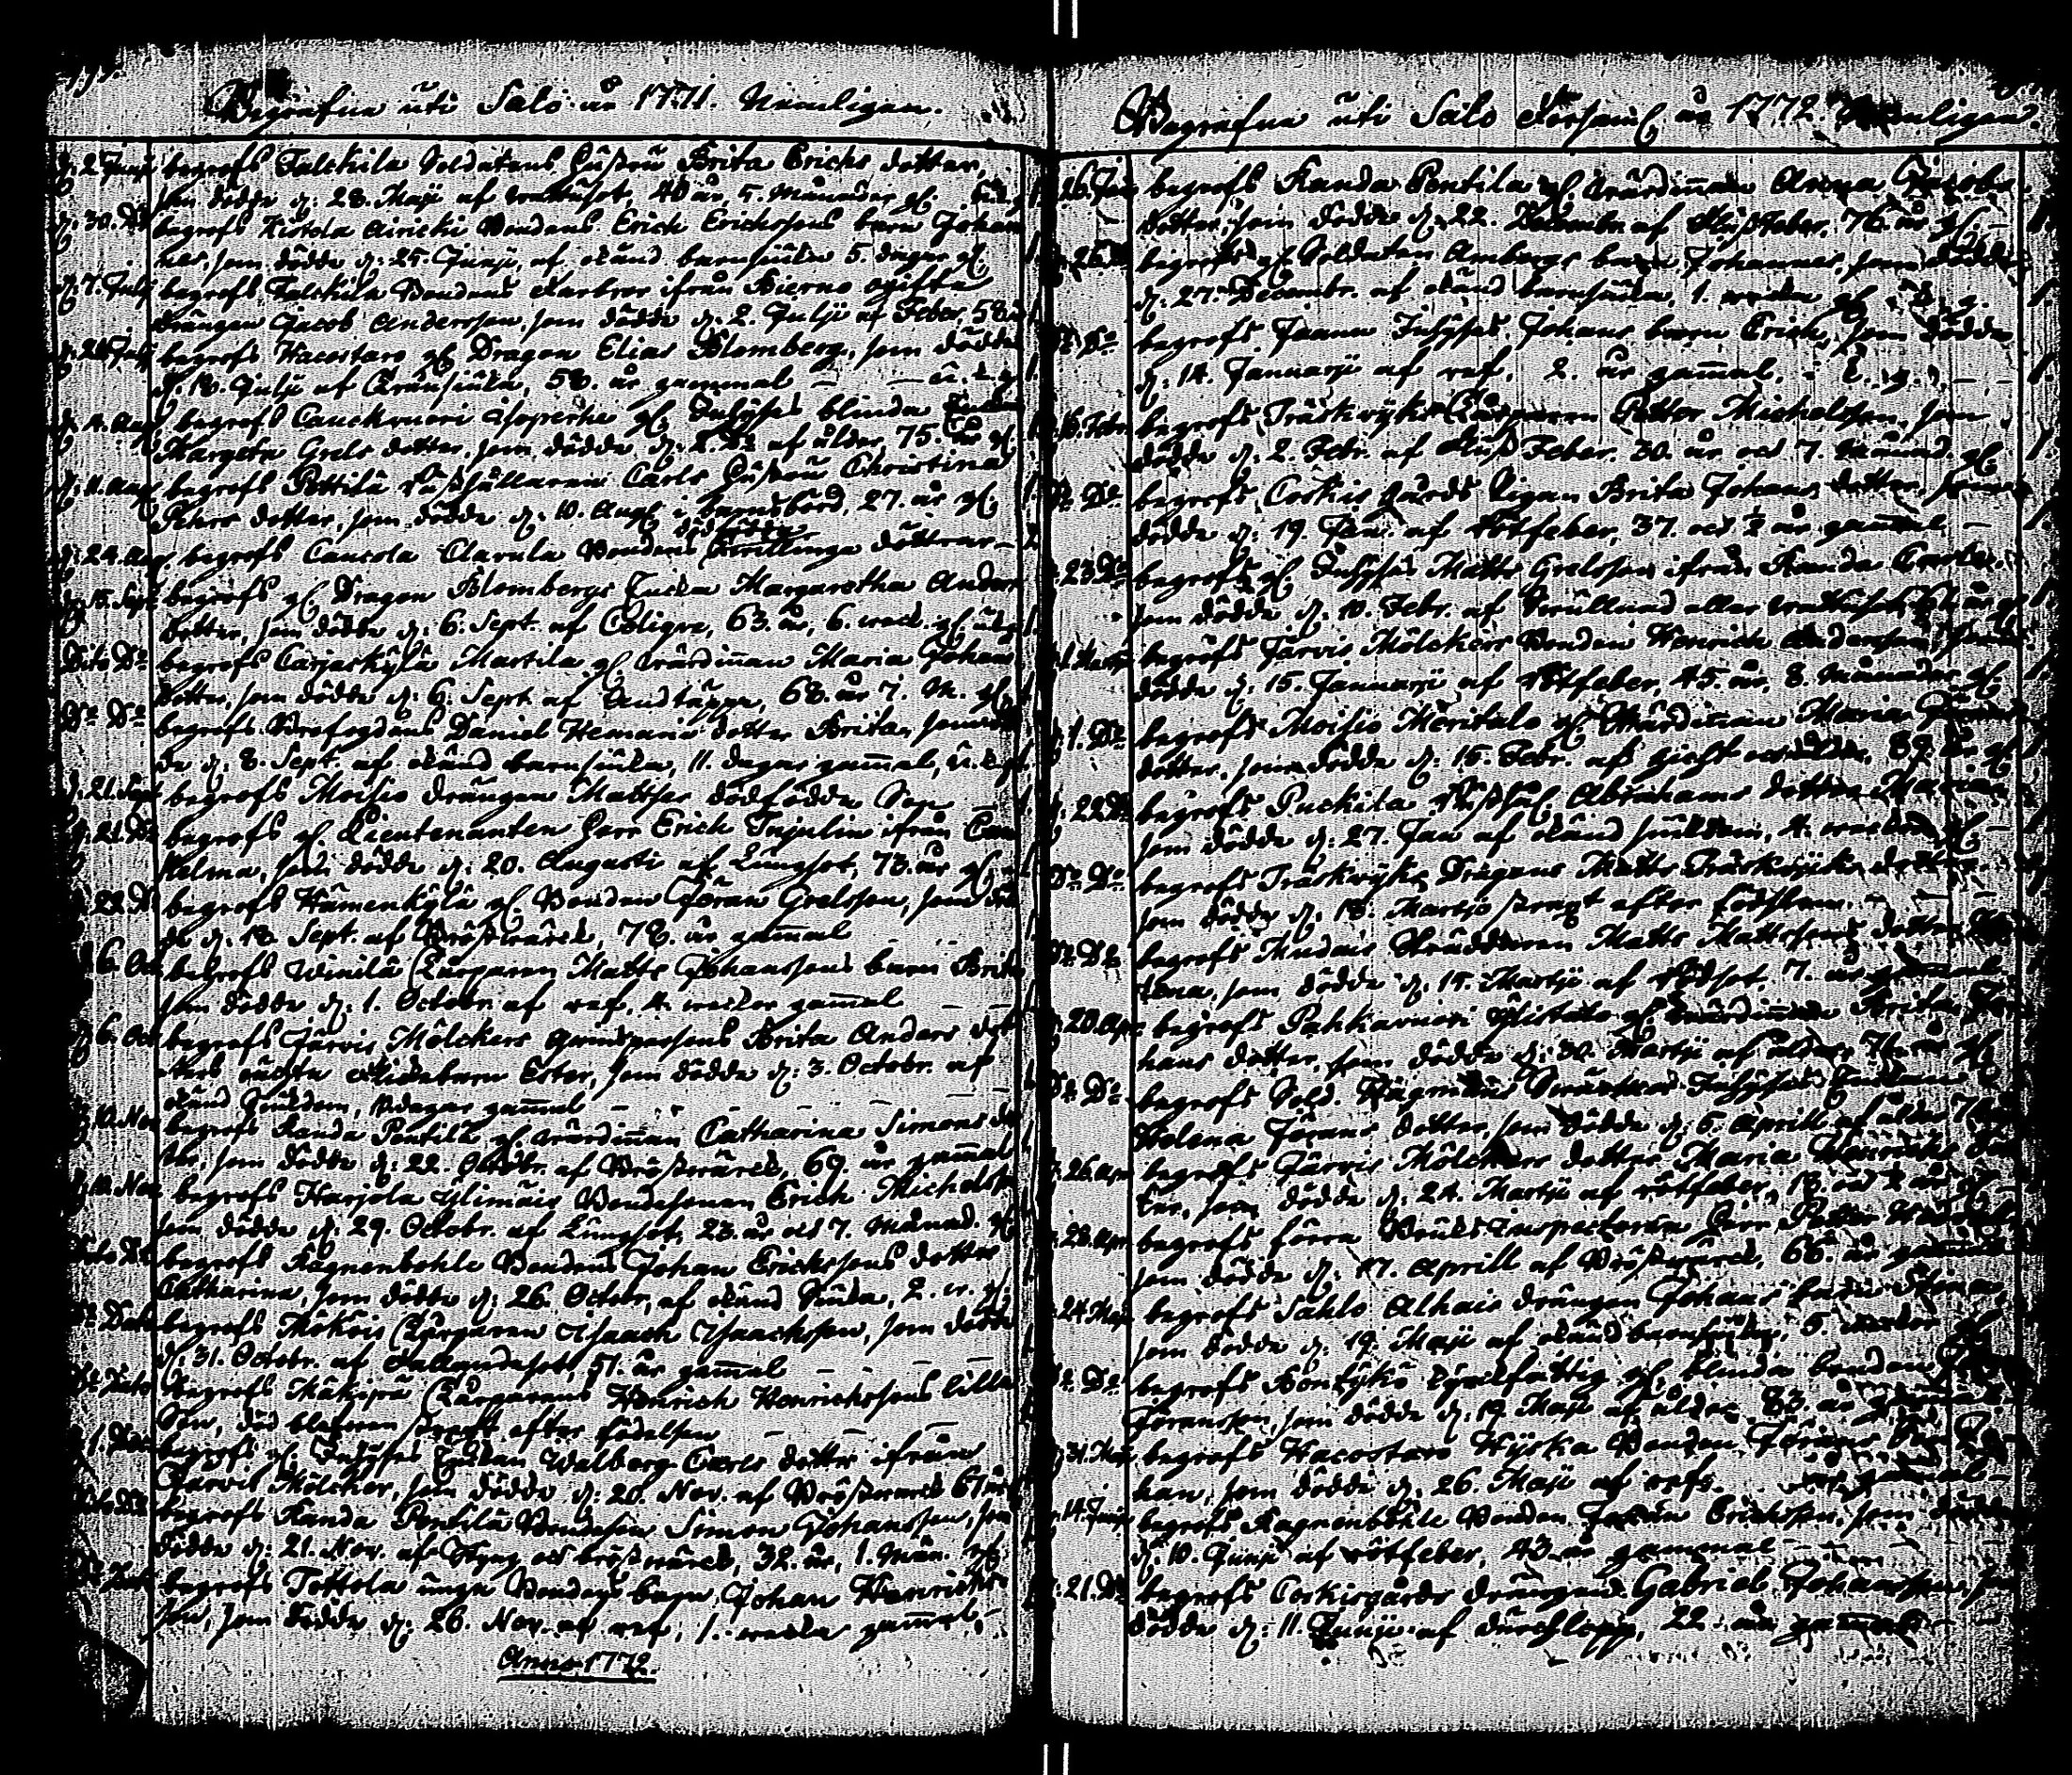 Begrafne uti Salo år 1771. Nemligen.
d. 2 Junii begrofs Talckila Soldatens hustru Brita Erichs dotter,
som dödde d: 28. Maji af 40 år, 5. Månader gl.
d. 30. Do begrofs Ristola Airicki Bondens Erich Erichssons barn Johan
nes, som dödde d: 25. Junii, af okänd barnsiuka 5. dagar gl.
d. 7. Julii begrofs Talckila Bondens ifrån Bierno ogifta
drängen Jacob Andersson, som dödde d: 2. Julii af Feber, 58 år
d. 21 Julii begrofs Hacostaro gl. Dragon Elias Blomberg, som dödde
d. 18. Julii af 58. år gammal
d. 4. Aug. begrofs Lauckvuori gl. Inhyses blinda Enkan
Margeta Grels dotter, som dödde d: 2. Do af ålder, 75. år gl.
d. 11. Aug. begrofs Pettilä Rusthållaren Carls hustru Christina
Pehrs dotter, som dödde d: 10. Aug. i barnsbörd, 27. år gl.
dödfödda
d. 24. Aug. begrofs Caucola Clavula Bondens Twillinga döttrar
d. 15. Sept. begrofs gl. Dragon Blombergs Encka Margaretha Anders
dotter, som dödde d: 6. Sept. af Colique, 63. år, 6. weck. gl.
Dito Do begrofs Carjaskylä Martila gl. wärdinnan Maria Johans
dotter, som dödde d: 6. Sept. af Andtäppa, 68. år 7. M. gl.
Do Do begrofs Brofogdens Daniel Hemanis dotter Brita, som död
de d: 8. Sept. af okänd barnsiuka, 11. dagar gammal,
d. 21. Sept. begrofs Moisio drängen Matthes dödfödda Son
d. 21. Do begrofs gl. Lieutenanten Herr Erich ifrån
som dödde d: 20. Augusti af Lungsot, 73. år gl.
d. 22. Do begrofs Hämenkylä gl. Bonden Jöran Grelsson, som död
de d: 18. Sept. af Bröstwärck, 78. år gammal
d. 6. Oct. begrofs Winilä Torparen Matts Johanssons barn Brita
som dödde d: 1. Octobr. af raf, 4. weckor gammal
d. 6. Oct. begrofs Järvis Mölckers qvinspersons Brita Anders dot
ters oächta barn Ester, som dödde d: 3. Octobr. af
okänd Siukdom, dagar gammal
d. 10. Nov. begrofs Kanda Pentilä gl. wärdinnan Catharina Simons dot
ter, som dödde d: 22. Octobr. af Bröstwärck, 69. år gammal
d. 10. Nov. begrofs Harjola Ylimäis Bondesonen Erich Michelsson
som dödde d: 29. Octobr. af Lungsot, 23. år och 7. Månad. gl.
Dito Do begrofs Kagnenbohle Bondens Johan Erichssons dotter
Catharina, som dödde d: 26. Octobr. af okänd Siuka, 2. w. gl.
Do Dato begrofs Torparen Isaach Isaachsson, som dödde
d: 31. Octobr. af 51. år gammal
Do Dato begrofs Mäkipä Torparens Henrich Henrichssons lilla
Son, död blefwen strax efter födelsen
d. 1. Dec. begrofs gl. Inhyses Enkan Walborg Carls dotter ifrån
Järvis Mölcker, som dödde d: 20. Nov. af Bröstwärck 67 år
Dito Do begrofs Kanda Pentilä Bondeson Simon Johansson, som
dödde d: 21. Nov. af Styng och bröstwärck, 32. år, 1. Mån. gl.
Do Dato begrofs Tottola unga Bondens barn, Johan Henrichs
son, som dödde d: 26. Nov. af raf, 1. wecka gammal,
Anno 1772.
Begrafne uti Salo Församl. år 1772. Nemligen.
26. Jan. begrofs Kanda Pentila gl. wärdinnan Anna Jacobs
dotter, som dödde d: 22. Decembr. af Flussfeber, 76. år gl.
26. Do begrofs gl. Soldaten Ambergs barn, Johannes, som dödde
d: 27. Decembr. af okänd barnsiuka, 1. wecka gl.
Do Do begrofs Inhyses Johans barn Erich, som dödde
d: 14. Januarii af raf, 2. år gammal,
16. Febr. begrofs Träskwyks Torparen Petter Michelsson, som
dödde d: 2. Febr. af Fluss Feber. 30. år och 7. månad. gl.
Do Do begrofs Coskis gårds Pigan Brita Johans dotter, som
dödde d: 19. Jan. af rötfeber, 37. och ½ år gammal
23. Do begrofs gl. Inhyses Matts Grelsson ifrån Kanda
som dödde d: 10. Febr. af
1. Martii begrofs Järvis Mölckers Bonden Henrich Andersson, som
dödde d: 15. Januarii af rötfeber, 45. år, 8. Månader gl.
1. Do begrofs Moisio Meritalo gl. Wärdinnan Maria
dotter, som dödde d: 15. Febr. af gicht 89. år gl.
22 Do begrofs Puckila Rusthål. Abrahams dotter Maria
som dödde d: 27. Jan af okänd siukdom, 4. weckor gl.
Do Do begrofs Träskwyks Drägens Matts dotter
som dödde d: 18. Martii strax efter födslen.
Do Do begrofs Skräddaren Matts Mattssons dotter
Lena, som dödde d: 15. Martii af Rödsot, 7. år gammal
20. Apr. begrofs Pahkavuori gl. wärdinnan Brita Jo
hans dotter, som dödde d: 30. Martii af ålder, år gl.
Do Do begrofs Sold. Inhyses Enkan
Helena Jörans dotter, som dödde d: 6. Aprill af ålder
26. Apr. begrofs Järvis Mölckers dotter, Maria Henrichs dot
ter, som dödde d: 24. Martii af rötfeber, 13. och ½ år gl.
28. Apr. begrofs förra Bruks Inspectoren Herr Petter
som dödde d: 17. Aprill af Bröstwärck, 66. år gammal
24. Maji begrofs Sahlo Alhais drängen Johans
som dödde d: 19. Maji af okänd barnsiuka, 5. weckor gl.
Do Do begrofs gl. blinda bonden
Jöransson, som dödde d: 19. Maji af ålder, 83. år gammal
31. Maji begrofs Hacostaro Hyska Bonden Jörans Son Jo
han, som dödde d: 26. Maji af rafs. gammal
14. Junii begrofs Kagnenbohle Bonden Johan Erichsson, som dödde
d: 10. Junii af rötfeber, 43 år gammal
21. Do begrofs Coskisgårds drängen Gabriel Johansson, som
dödde d: 11. Junii af durchlopp, 22. år gammal